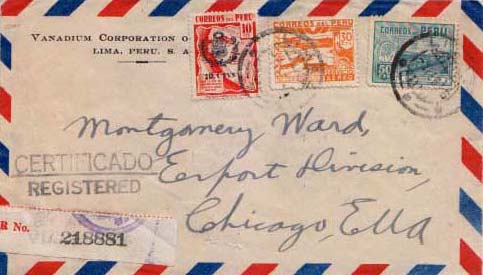 VANADIUM CORPORATION O
LIMA, PERU. S. A
CORREOS DEL PERU
10
CORREOS DEL PERU
50
AEREO
CORREOS PERU
50
Montgomery Ward,
Export Division,
Chicago, EUA
CERTIFICADO
REGISTERED
R No.
218881